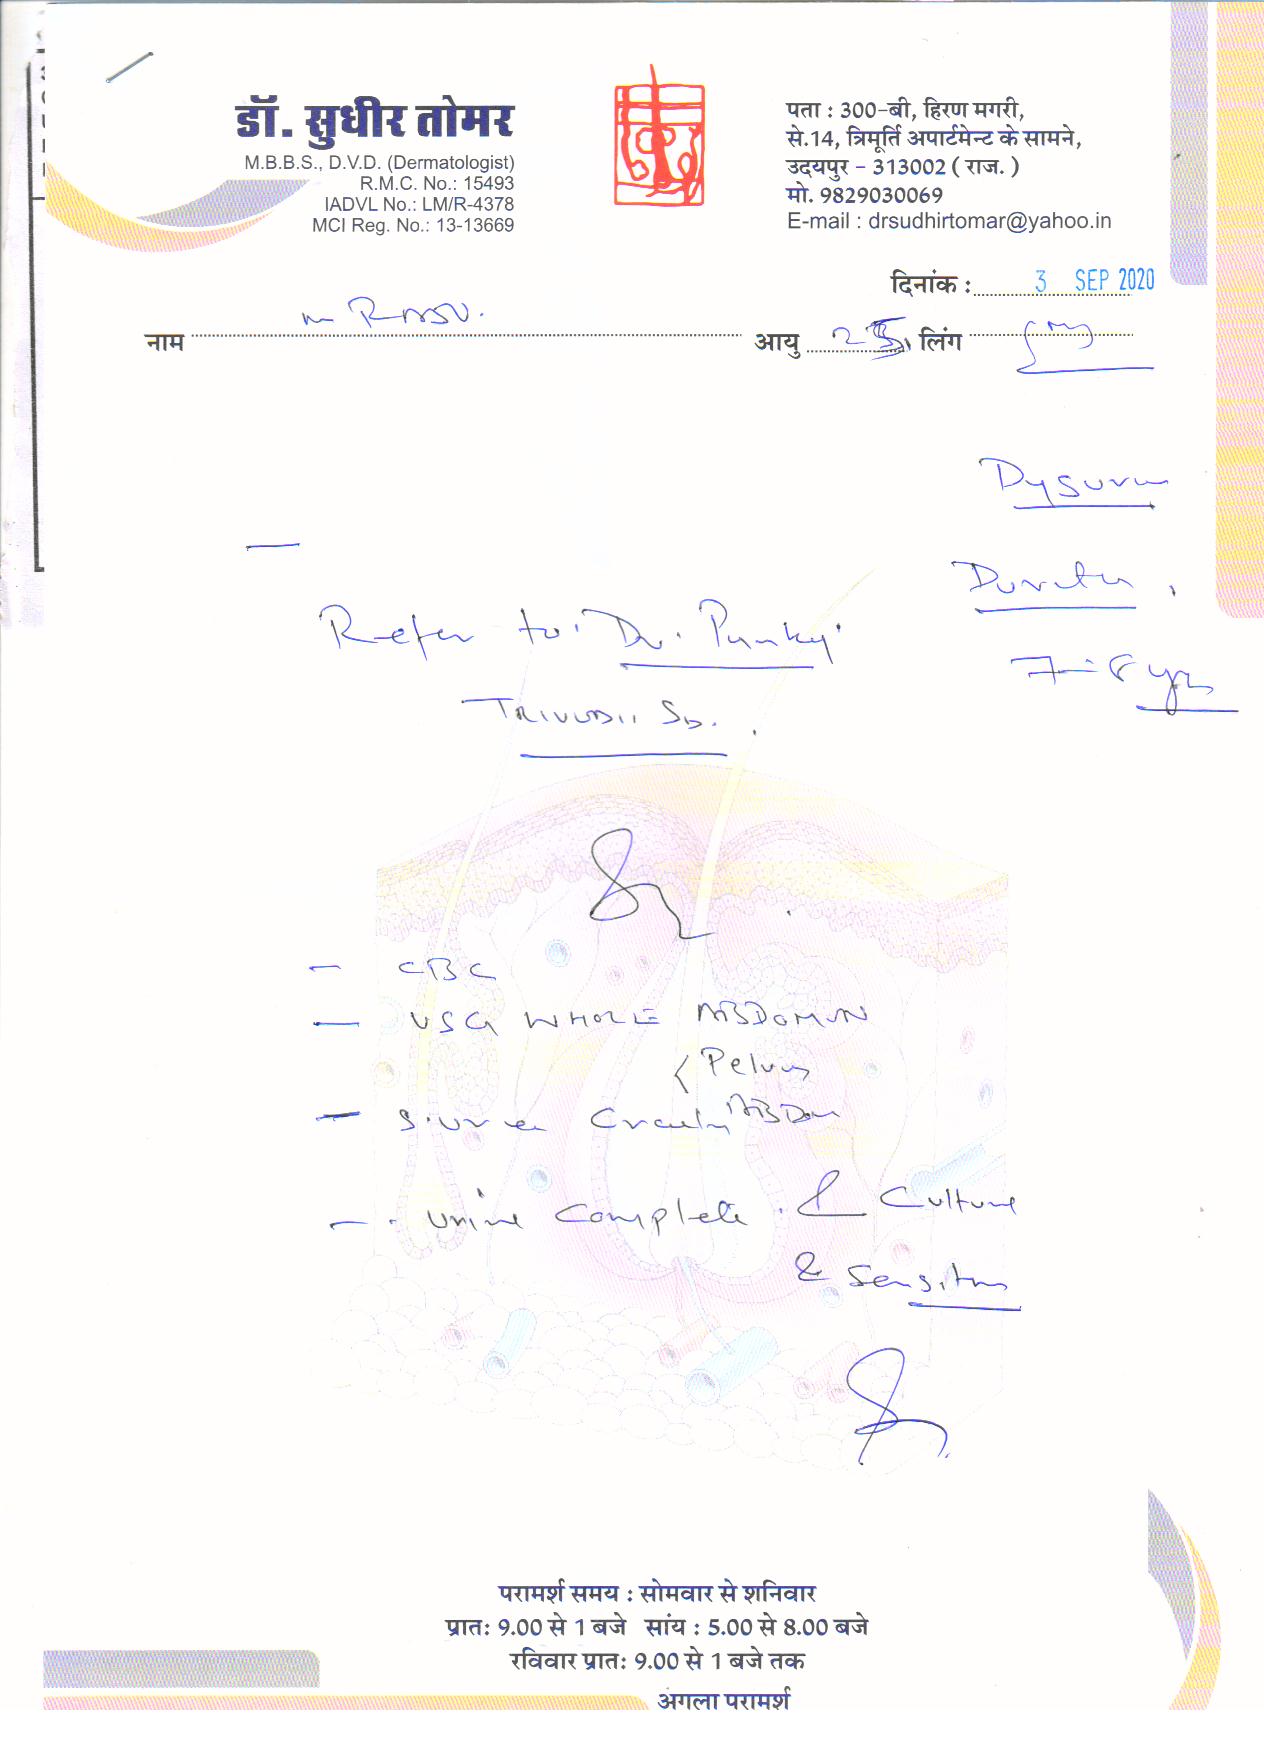 डॉ. सुधीर तोमर
M.B.B.S., D.V.D. (Dermatologist)
R.M.C. No.: 15493
IADVL No.: LM/R-4378
MCI Reg. No.: 13-13669
पता : 300-बी, हिरण मगरी,
से.14, त्रिमूर्ति अपार्टमेन्ट के सामने,
उदयपुर - 313002 ( राज. )
मो. 9829030069
E-mail : drsudhirtomar@yahoo.in
दिनांक : 3 SEP 2020
नाम आयु लिंग
Dysuria
Refer to Dr.
7-8 yrs
- CBC
- USG WHOLE ABDOMEN
Pelvis
- S. urea
- Urine Complete & Culture
& Sensitivity
परामर्श समय : सोमवार से शनिवार
प्रातः 9.00 से 1 बजे सांय : 5.00 से 8.00 बजे
रविवार प्रातः 9.00 से 1 बजे तक
अगला परामर्श